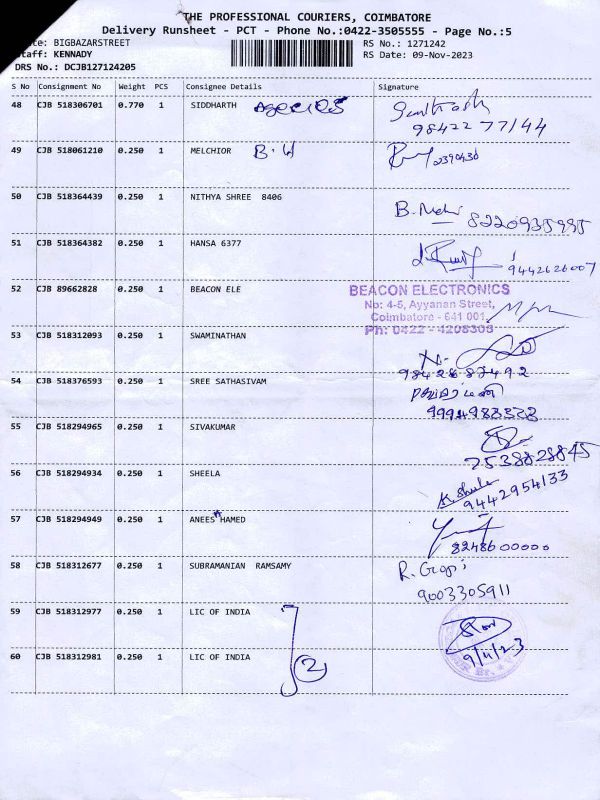 THE PROFESSIONAL COURIERS, COIMBATORE
Delivery Runsheet - PCT - Phone No.:0422-3505555 - Page No.:5
BIGBAZARSTREET
RS No.: 1271242
Staff: KENNADY
RS Date: 09-Nov-2023
DRS No.: DCJB127124205
S No Consignment No Weight PCS Consignee Details Signature
48 CJB 518306701 0.770 1 SIDDHARTH Agencies
98422 77144
49 CJB 518061210 0.250 1 MELCHIOR
2390430
50 CJB 518364439 0.250 1 NITHYA SHREE 8406
8220935995
51 CJB 518364382 0.250 1 HANSA 6377
9442626007
52 CJB 89662828 0.250 1 BEACON ELE
BEACON ELECTRONICS
No: 4-5, Ayyanan Street,
Coimbatore - 641 001
Ph: 0422 - 4208308
53 CJB 518312093 0.250 1 SWAMINATHAN
54 CJB 518376593 0.250 1 SREE SATHASIVAM
9994988323
55 CJB 518294965 0.250 1 SIVAKUMAR
7538828845
56 CJB 518294934 0.250 1 SHEELA
9442954133
57 CJB 518294949 0.250 1 ANEES HAMED
8248600000
58 CJB 518312677 0.250 1 SUBRAMANIAN RAMSAMY
R. Gopi
9003305911
59 CJB 518312977 0.250 1 LIC OF INDIA
60 CJB 518312981 0.250 1 LIC OF INDIA
2
9/11/23